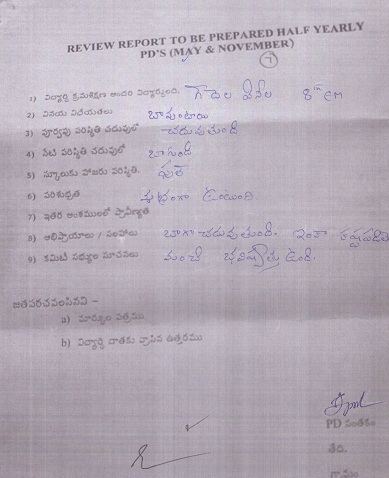 REVIEW REPORT TO BE PREPARED HALF YEARLY
PD'S (MAY & NOVEMBER)
7
1) విద్యార్థి క్రమశిక్షణ అందరి విద్యార్థులది. 8th EM
2) వినయ విధేయతలు బావుంటాయి
3) పూర్వపు పరిస్థితి చదువులో చదువుతుంది
4) నేటి పరిస్థితి చదువులో బాగుంది
5) స్కూలుకు హాజరు పరిస్థితి.
6) పరిశుభ్రత శుభ్రంగా ఉంటుంది.
7) ఇతర అంశములలో ప్రావీణ్యత
8) అభిప్రాయాలు / సలహాలు బాగా చదువుతుంది. ఇంకా కష్టపడితే
9) కమిటి సభ్యుల సూచనలు మంచి భవిష్యత్తు ఉంది.
జతపరచవలసినవి –
a) మార్కుల పత్రము
b) విద్యార్థి దాతకు వ్రాసిన ఉత్తరము
PD సంతకం
తేది.
గ్రామం